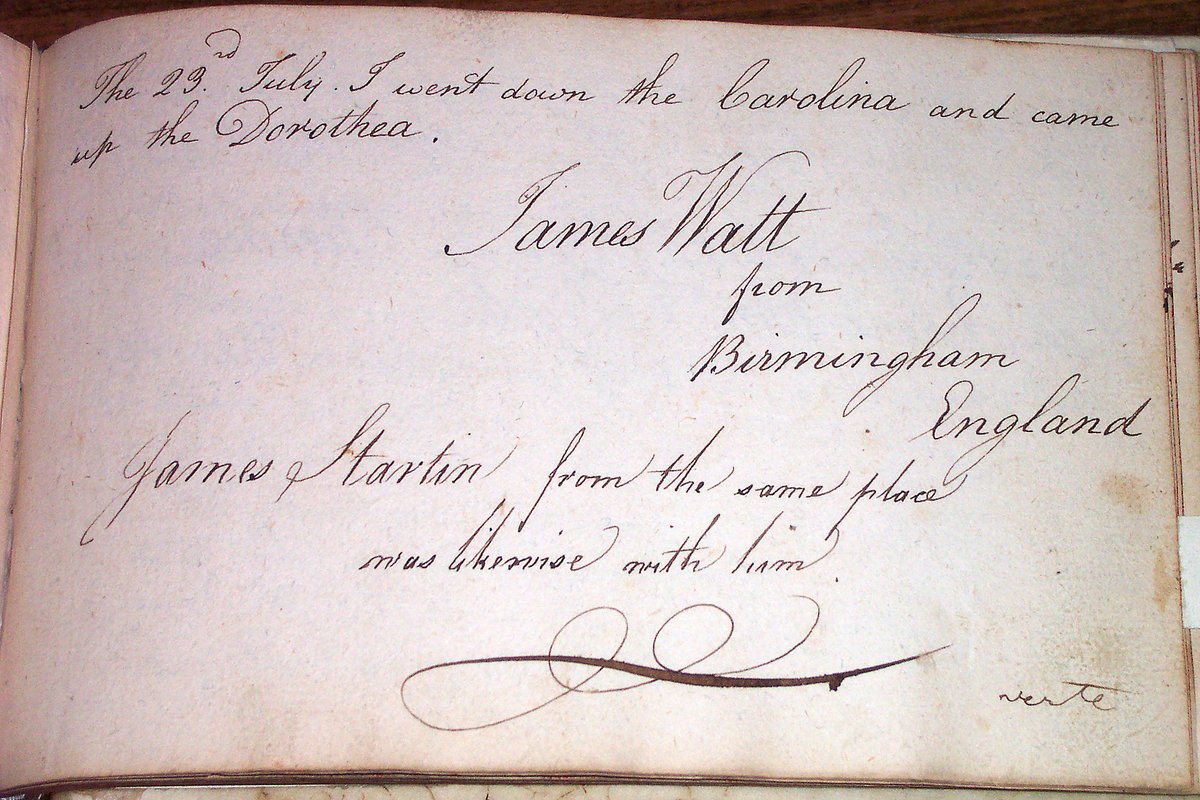 The 23.rd July. I went down the Carolina and came
up the Dorothea.
James Watt
from
Birmingham
England
James Startin from the same place
was likewise with him.
verte